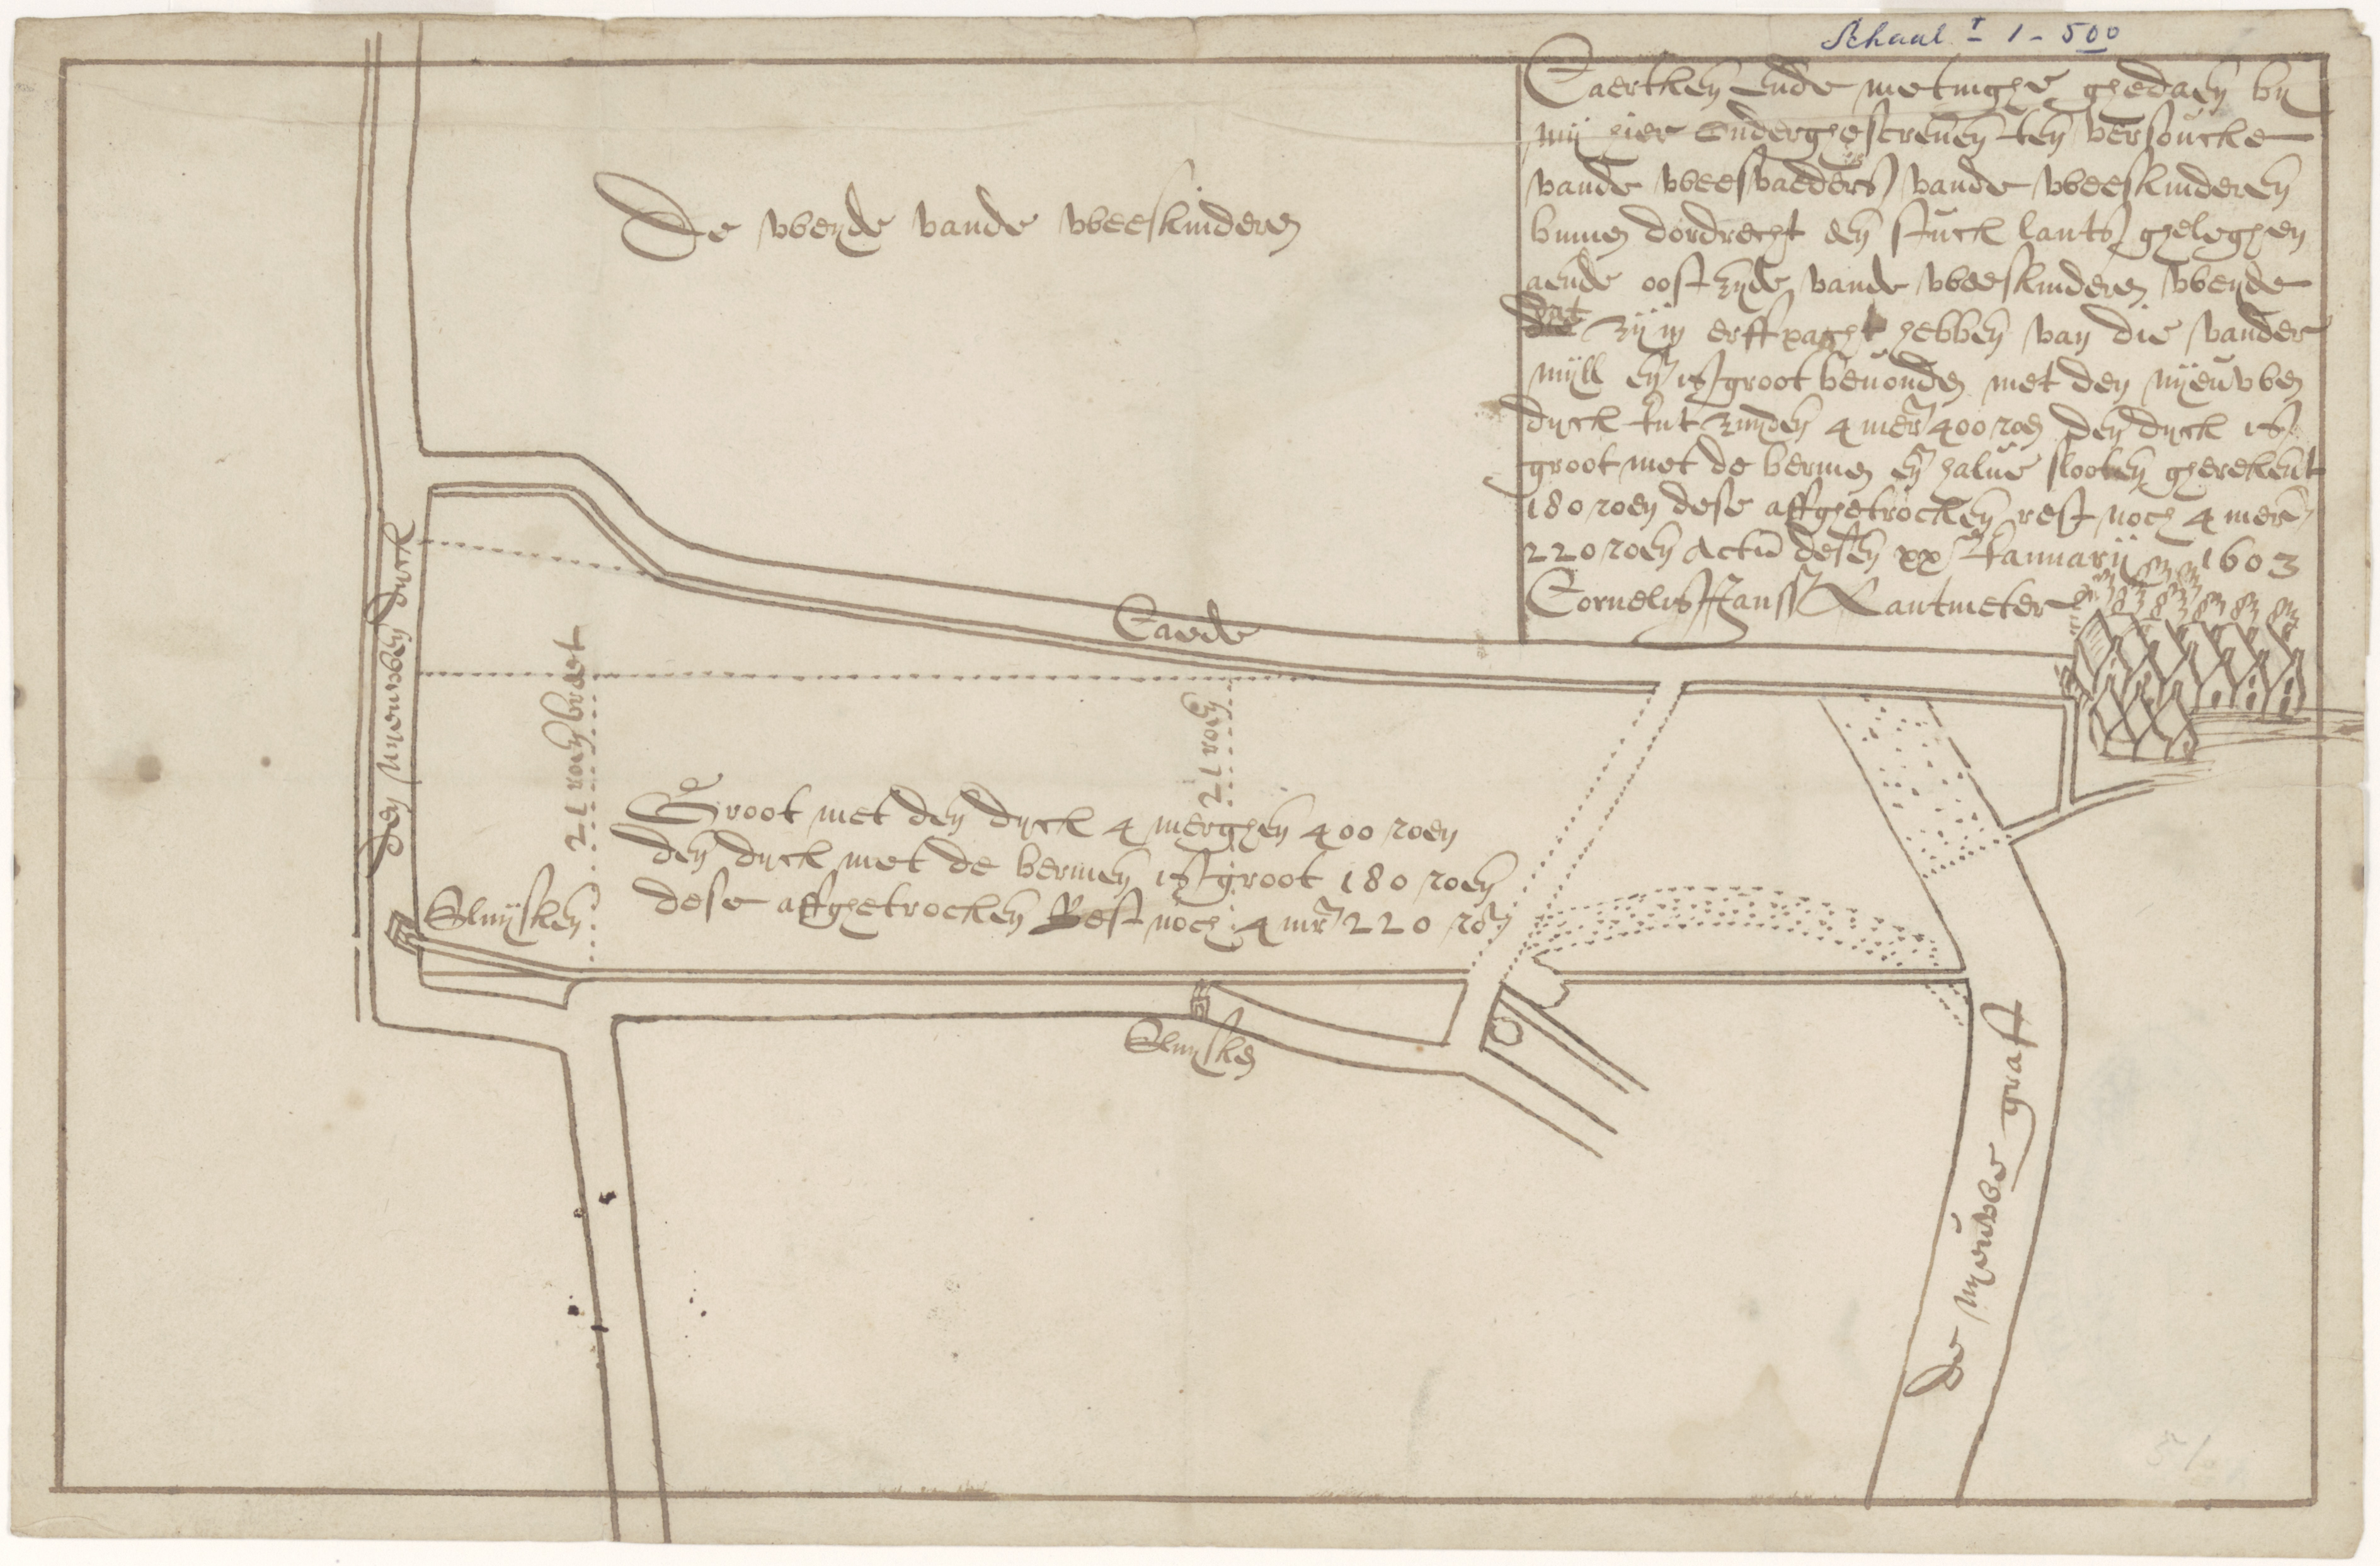 Schaal ± 1-500
Caertken ende metinghe ghedaen bij
mij hier onderghescreuen ten versoucke
vande wees vaeders vande weeskinderen
binnen dordrecht den stuck lants gheleghen
aende oost zijde vande weeskinderen weyde
dat zij in erffpacht hebben van die vander
mijll en is groot beuonden met den nijeuwen
dyck tut zuyden 4 mer 400 roen den dyck is
groot met de bermen en halue slooten gherekent
180 roen dese affghetrocken rest noch 4 mer
220 roen actu desen xx Januarij 1603
Cornelis Janss Lantmeter
De weyde vande weeskinderen
Caede
Den nyeuwen dyck
21 roen breet
21 roen
Groot met den dyck 4 merghen 400 roen
den dyck met de bermen is groot 180 roen
dese affghetrocken Rest noch 4 mr 220 roen
Sluijsken
Sluysken
De nyeuwe graft